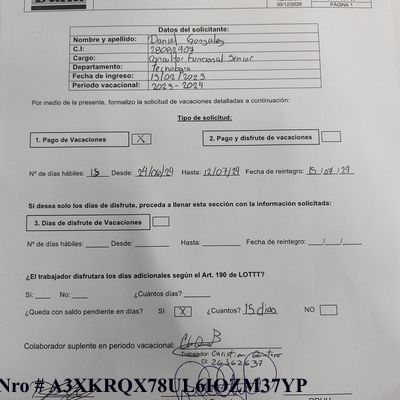 30/12/2026
PÁGINA 1
Datos del solicitante:
Nombre y apellido: Daniel Gonzalez
C.I: 28082907
Cargo: Consultor Funcional Senior
Departamento: Tecnología
Fecha de ingreso: 13/02/2023
Periodo vacacional: 2023-2024
Por medio de la presente, formalizo la solicitud de vacaciones detalladas a continuación:
Tipo de solicitud:
1. Pago de Vacaciones X 2. Pago y disfrute de vacaciones
Nº de días hábiles: 15 Desde: 24/06/24 Hasta: 12/07/24 Fecha de reintegro: 15/07/24
Si desea solo los días de disfrute, proceda a llenar esta sección con la información solicitada:
3. Días de disfrute de Vacaciones
Nº de días hábiles: Desde: Hasta: Fecha de reintegro: __/__/__
¿El trabajador disfrutara los días adicionales según el Art. 190 de LOTTT?
Sí: No: ¿Cuántos días?
¿Queda con saldo pendiente en días? SI X ¿Cuantos? 15 dias NO
Colaborador suplente en periodo vacacional:
Trabajador: Christian
Nro # A3XKRQX78UL6IOZM37YP